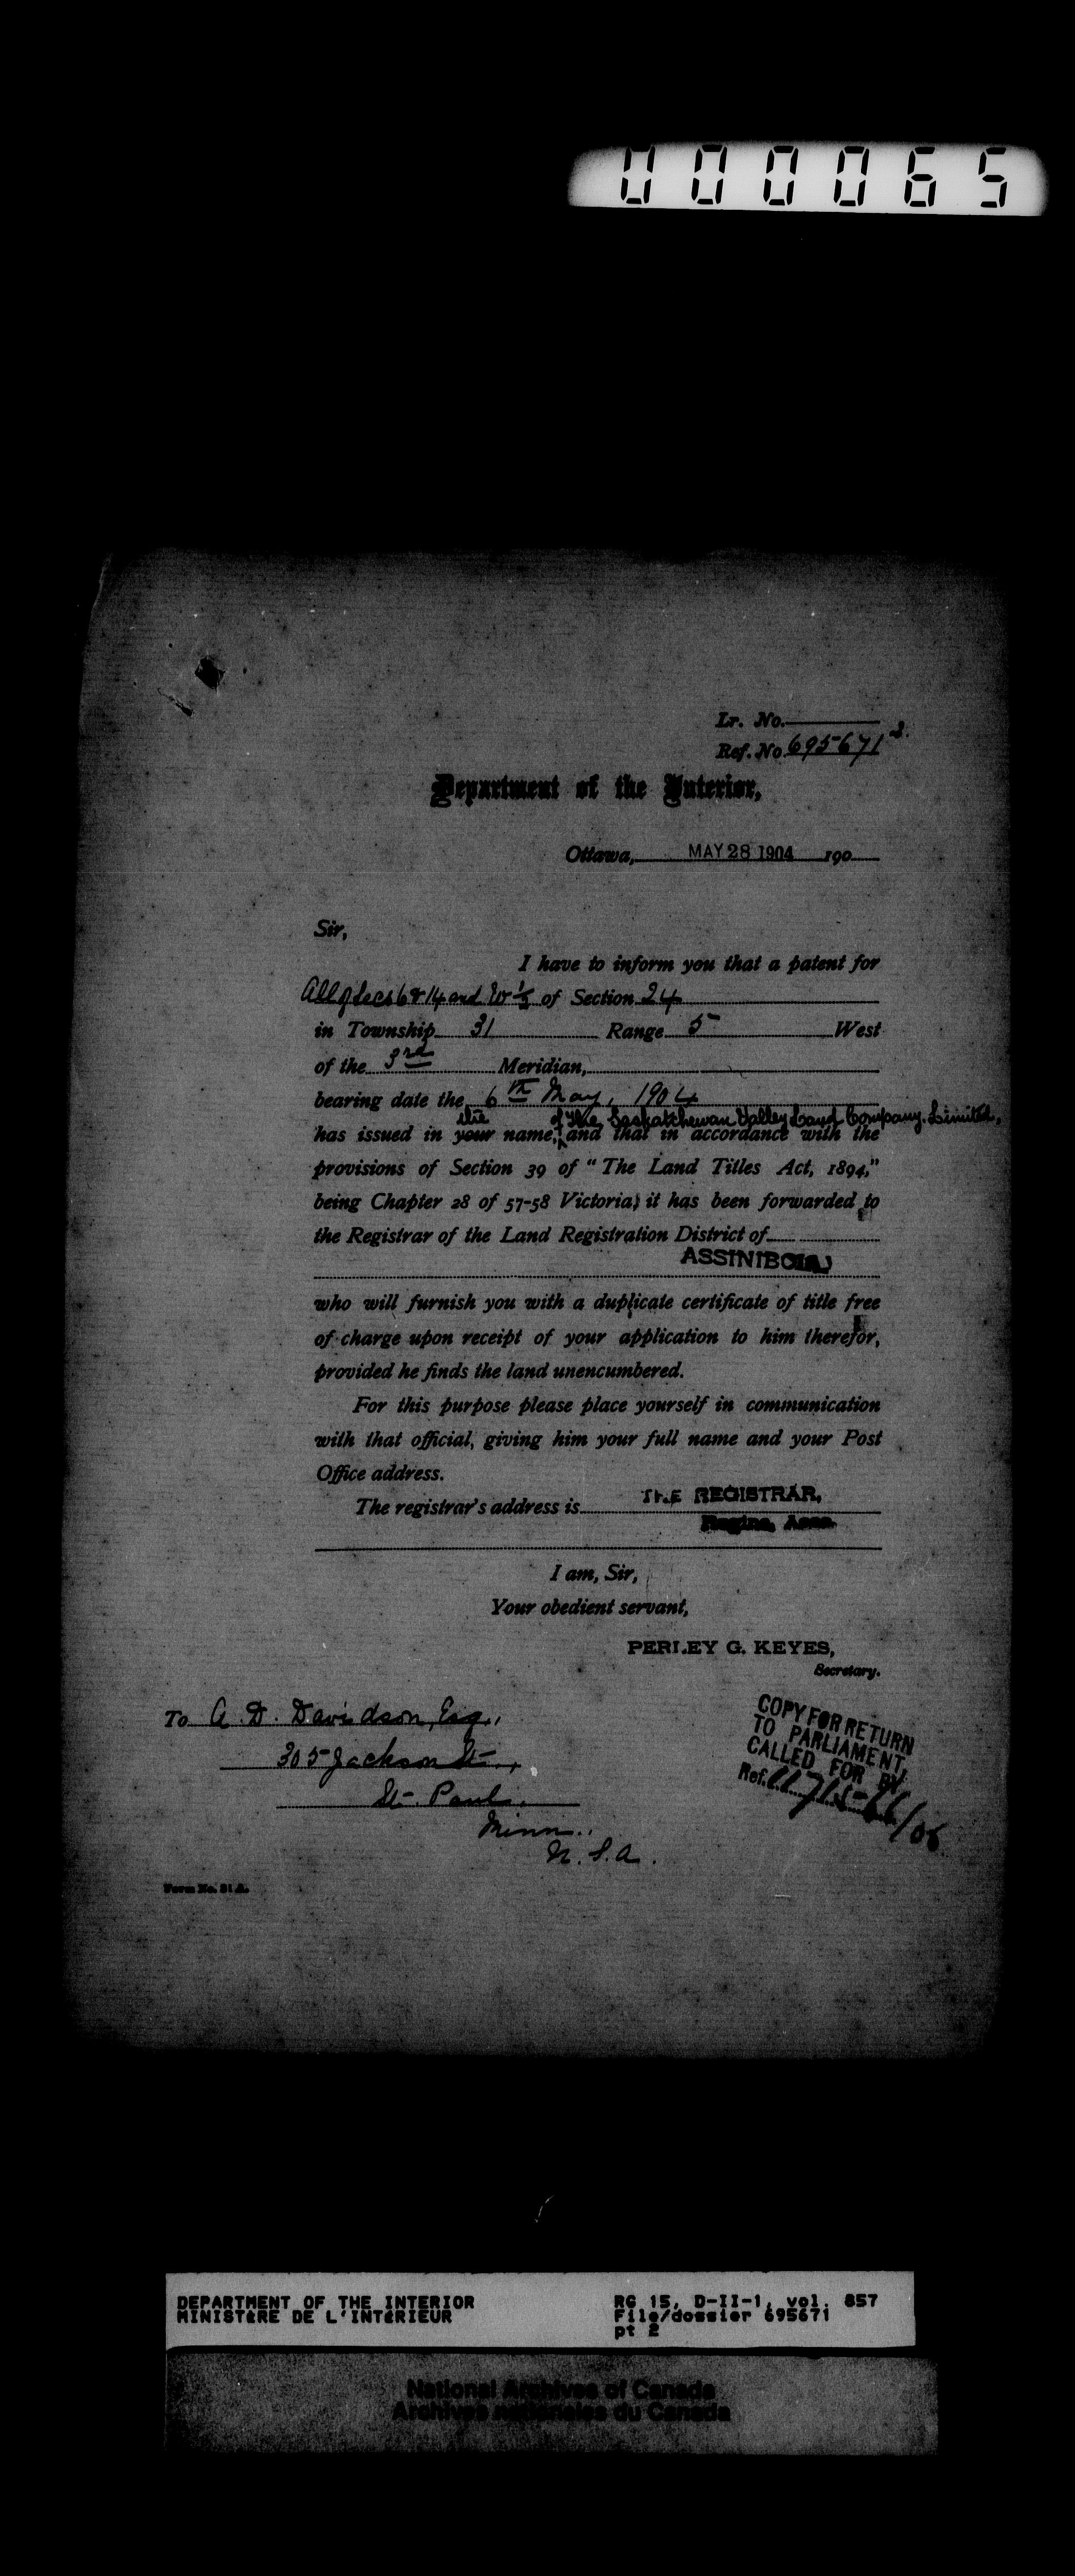 000065
Lr. No.
Ref. No. 695671 2.
Department of the Interior,
Ottawa, MAY 28 1904 190
Sir,
I have to inform you that a patent for
All of Secs 6 & 14 and W ½ of Section 24
in Township 31 Range 5 West
of the 3rd Meridian,
bearing date the 6th May, 1904
the of The Saskatchewan Valley Land Company. Limited,
has issued in your name, and that in accordance with the
provisions of Section 39 of "The Land Titles Act, 1894,"
being Chapter 28 of 57-58 Victoria) it has been forwarded to
the Registrar of the Land Registration District of
ASSINIBOIA
who will furnish you with a duplicate certificate of title free
of charge upon receipt of your application to him therefor,
provided he finds the land unencumbered.
For this purpose please place yourself in communication
with that official, giving him your full name and your Post
Office address.
The registrar's address is THE REGISTRAR,
Regina, Assa.
I am, Sir,
Your obedient servant,
PERLEY G. KEYES,
Secretary.
To A. D. Davidson, Esq.,
305 Jackson St.,
St. Paul.
Minn.,
U. S. A.
COPY FOR RETURN
TO PARLIAMENT,
CALLED FOR BY
Ref.
Form No. 81 A.
DEPARTMENT OF THE INTERIOR
MINISTÈRE DE L'INTÉRIEUR
RG 15, D-II-1, vol. 857
File/dossier 695671
pt 2
National Archives of Canada
Archives nationales du Canada